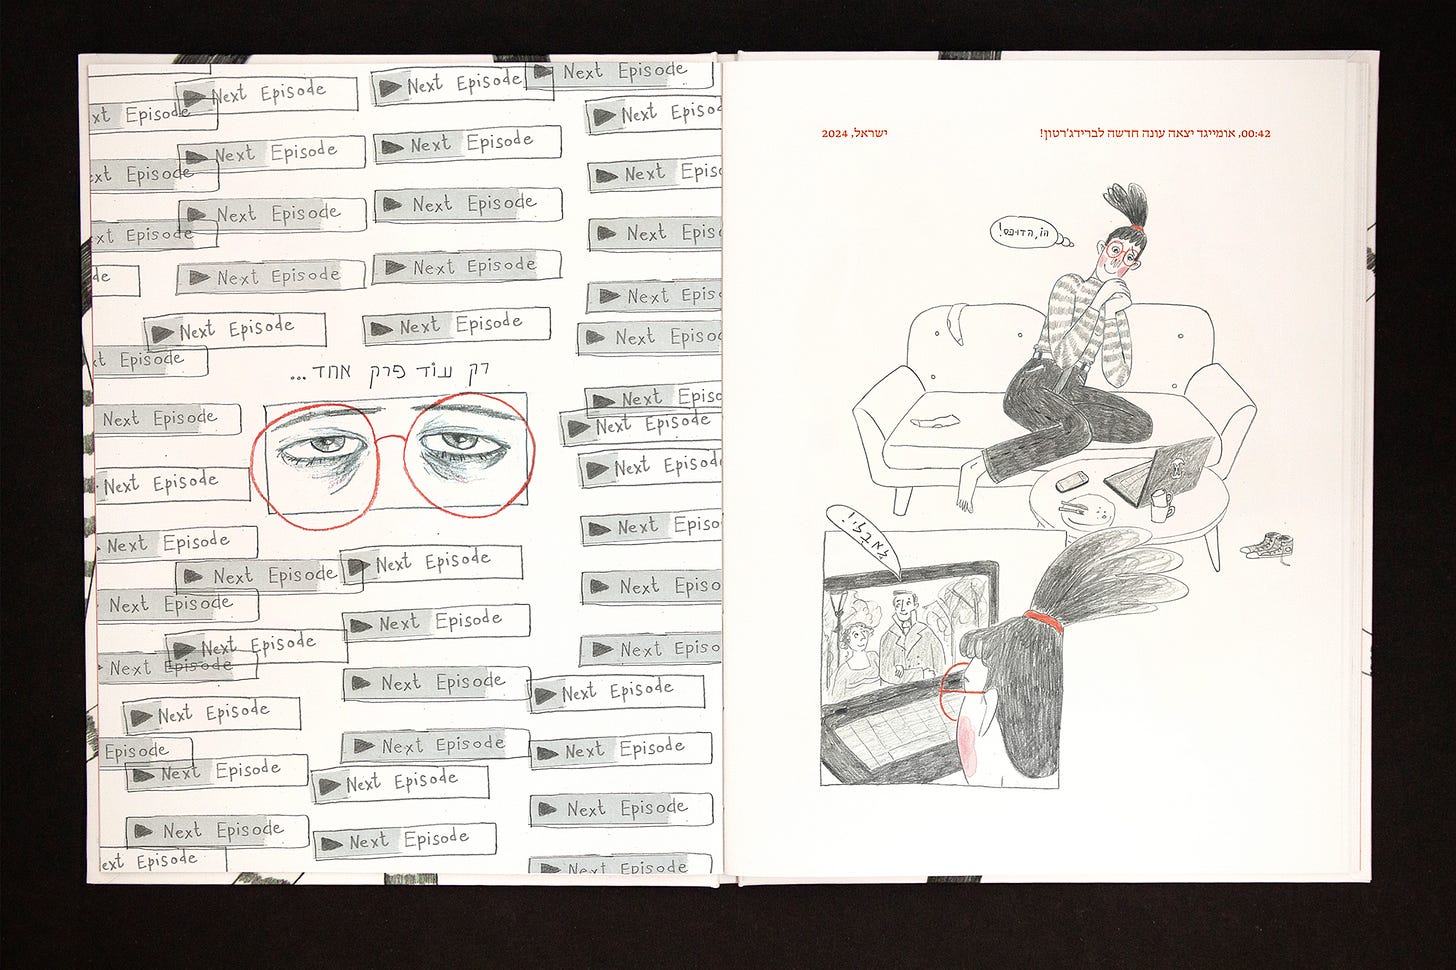 00:42, אומייגד יצאה עונה חדשה לברידג'רטון!
ישראל, 2024
הו, הדוכס!
לאבלי!
Next Episode
Next Episode
Next Episode
xt Episode
Next Episo
Next Episode
Next Episode
xt Episode
Next Epis
Next Episode
Next Episode
xt Episode
Next Epis
Next Episode
Next Episode
de
Next Epis
Next Episode
Next Episode
Next Episode
t Episode
רק עוד פרק אחד...
Next Episo
Next Episode
Next Episode
Next Episode
Next Episode
Next Episo
Next Episode
Next Episode
Next Episode
Next Episode
Next Episode
Next Episode
Next Episode
Next Episo
Next Episode
Next Episode
Next Episode
Next Episode
Next Episode
Next Episode
Episode
Next Episode
Next Episode
Next Episode
Next Episode
Next Episode
ext Episode
Next Episode